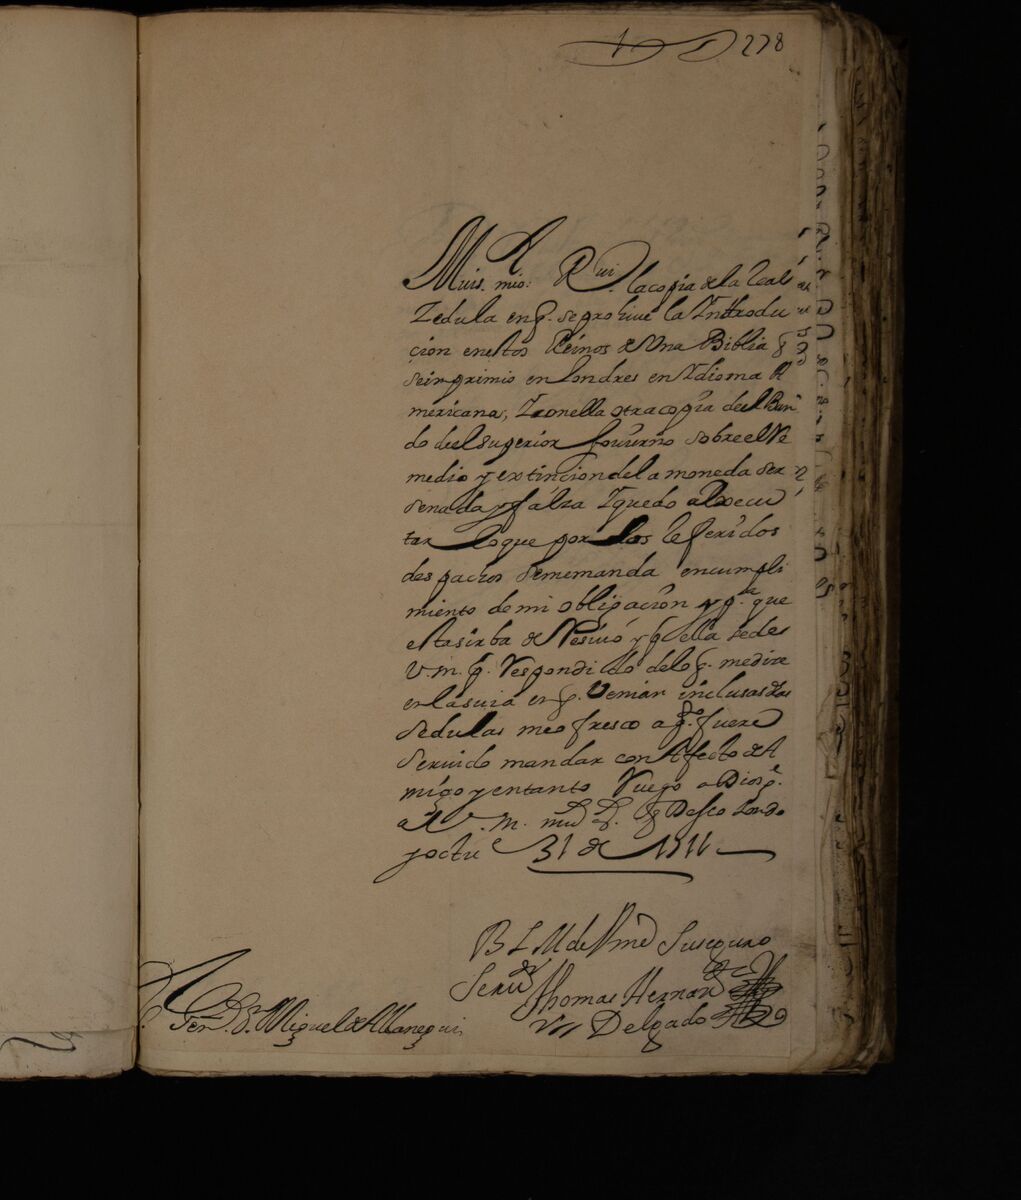 278
Muis. mio: Rui. la copia de la Real
Zedula en q. se prohive la Inttrodu
çion en estos Reinos de Una Biblia q
se inprimio en Londres en Idioma A
mericana, Y con ella otra copia de el Ban
do de el superior Govierno sobre el Re
medio y extincion de la moneda ser
senada y falza Y quedo a Lexecu
tar lo que por los Referidos
despachos se me manda en cumpli
miento de mi obligación y pa. que
esta sirba de Resivo y q ella sede
V.m. q. Respondido de lo q. me dice
en la suia en q. Venian inclusas dhas
sedulas me ofresco a qto. fuere
servido mandar con Afecto de A
migo y entanto Ruego a Dios ge.
a V. M. mu. a.
y octue 31 de 1711
B L M de Vmd Su seguro
Servdr
Thomas Hernandz
Delgado
Sr. Genl. Dn. Miguel de